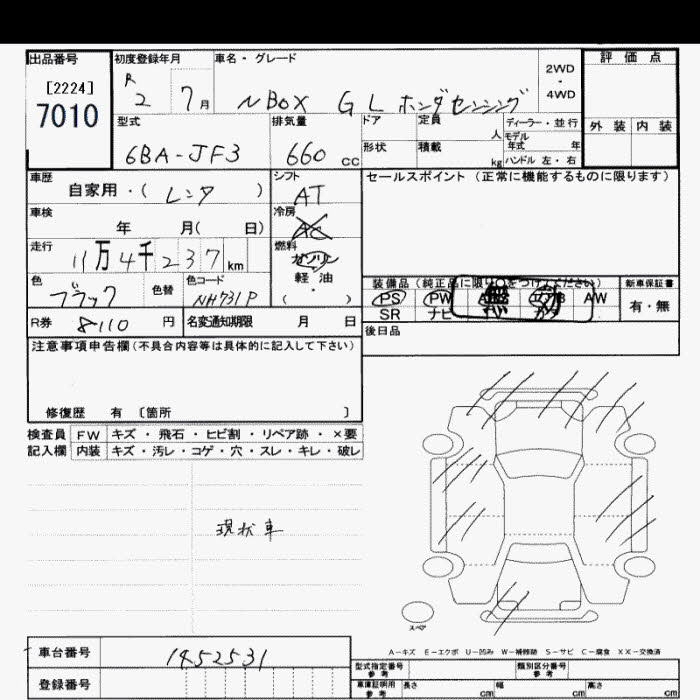 出品番号 初度登録年月 車名・グレード 評価点
[2224]
7010
R 2 7月 N BOX GL ホンダセンシング 2WD・4WD
型式 排気量 ドア 定員 人 ディーラー・並行 外装 内装
6BA-JF3 660cc 形状 積載 kg モデル年式 年 ハンドル 左・右
車歴 シフト セールスポイント (正常に機能するものに限ります)
自家用・( レンタ ) AT
車検 冷房
年 月( 日) AC
走行 燃料
11万4千237km ガソリン
軽・油
( ・ )
色 色替 色コード
ブラック NH731P
装備品(純正品に限り〇をつけてください) 新車保証書
PS PW AW 有・無
SR ナビ
R券 8110円 名変通知期限 月 日 後日品
注意事項申告欄(不具合内容等は具体的に記入して下さい)
修復歴 有 〔箇所 〕
検査員 FW キズ・飛石・ヒビ割・リペア跡・×要
記入欄 内装 キズ・汚レ・コゲ・穴・スレ・キレ・破レ
現状車
スペア
A-キズ E-エクボ U-凹み W-補修跡 S-サビ C-腐食 XX-交換済
車台番号 1452531 型式指定番号 参考 類別区分番号 参考
登録番号 車庫証明用 参考 長さ cm 幅 cm 高さ cm